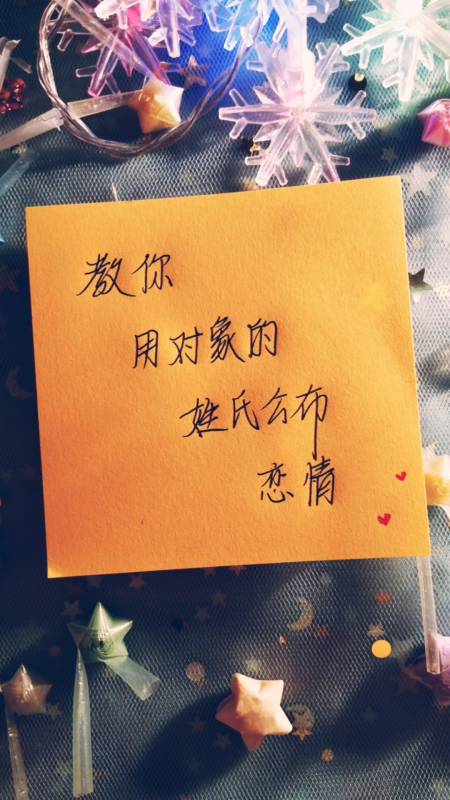 教你
用对象的
姓氏公布
恋情